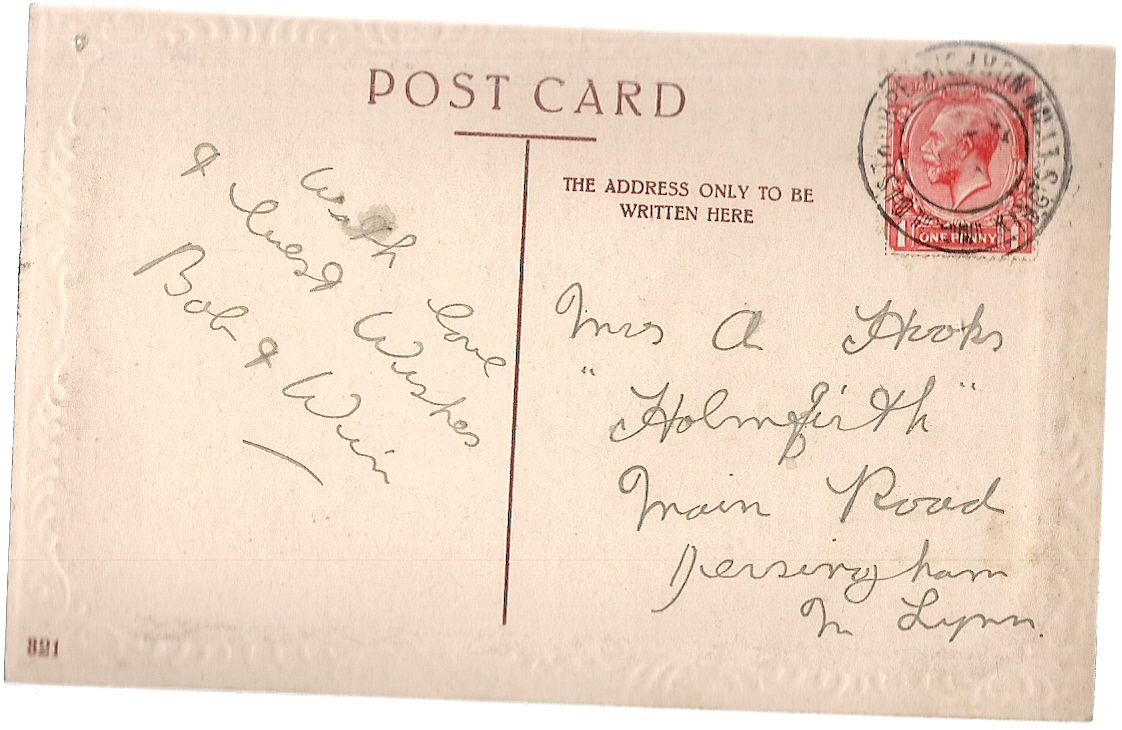 POST CARD
With love
& best Wishes
Bob & Win
THE ADDRESS ONLY TO BE
WRITTEN HERE
Mrs A Hooks
"Holmfirth"
Main Road
Dersingham
Nr Lynn.
ONE PENNY
821